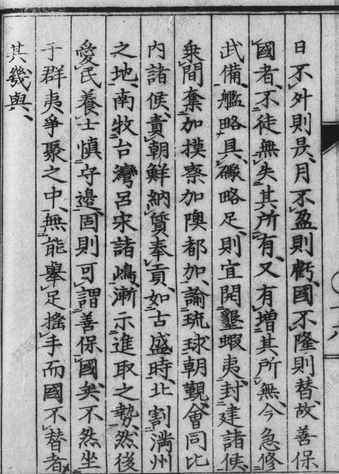 日不升則昃、月不盈則虧、國不隆則替、故善保
國者、不徒無失其所有、又有增其所無、今急修
武備、艦略具、礟略足、則宜開墾蝦夷、封建諸侯、
乘間奪加摸察加隩都加、諭琉球朝覲會同比
內諸侯、責朝鮮納質奉貢、如古盛時、北割滿州
之地、南收台灣呂宋諸嶋、漸示進取之勢、然後
愛民養士、慎守邊固、則可謂善保國矣、不然坐
于群夷爭聚之中、無能舉足搖手、而國不替者
其幾與、